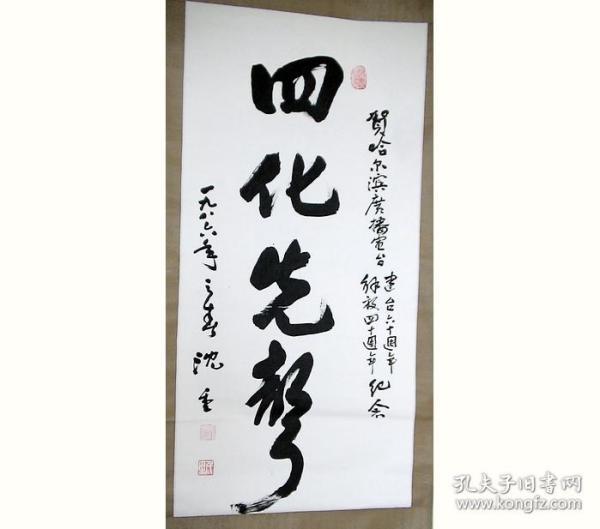 贺哈尔滨广播电台
建台六十周年
解放四十周年
纪念
四化先声
一九八六年之春 沈重
孔夫子旧书网
www.kongfz.com